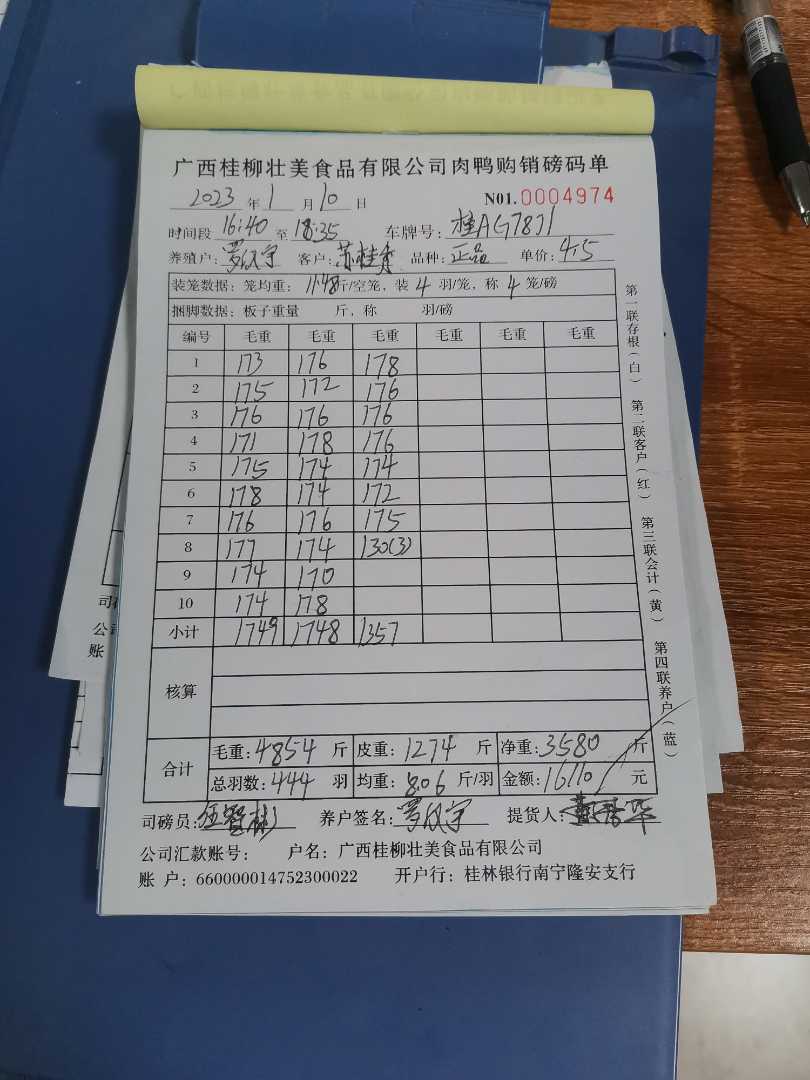 广西桂柳壮美食品有限公司肉鸭购销磅码单
2023 年 1 月 10 日 N01.0004974
时间段 16:40 至 18:35 车牌号: 桂AG7871
养殖户: 罗汉宇 客户: 苏桂秀 品种: 正品 单价: 4.5
装笼数据: 笼均重: 11.48斤/空笼, 装 4 羽/笼, 称 4 笼/磅
捆脚数据: 板子重量 斤, 称 羽/磅
编号 毛重 毛重 毛重 毛重 毛重 毛重
1 173 176 178
2 175 172 176
3 176 176 176
4 171 178 176
5 175 174 174
6 178 174 172
7 176 176 175
8 177 174 130(3)
9 174 170
10 174 178
小计 1749 1748 1357
核算
合计 毛重: 4854 斤 皮重: 1274 斤 净重: 3580 斤
总羽数: 444 羽 均重: 8.06 斤/羽 金额: 16110 元
司磅员: 智彬 养户签名: 罗汉宇 提货人:
公司汇款账号: 户名: 广西桂柳壮美食品有限公司
账 户: 660000014752300022 开户行: 桂林银行南宁隆安支行
第一联存根(白) 第二联客户(红) 第三联会计(黄) 第四联养户(蓝)
司
公
账